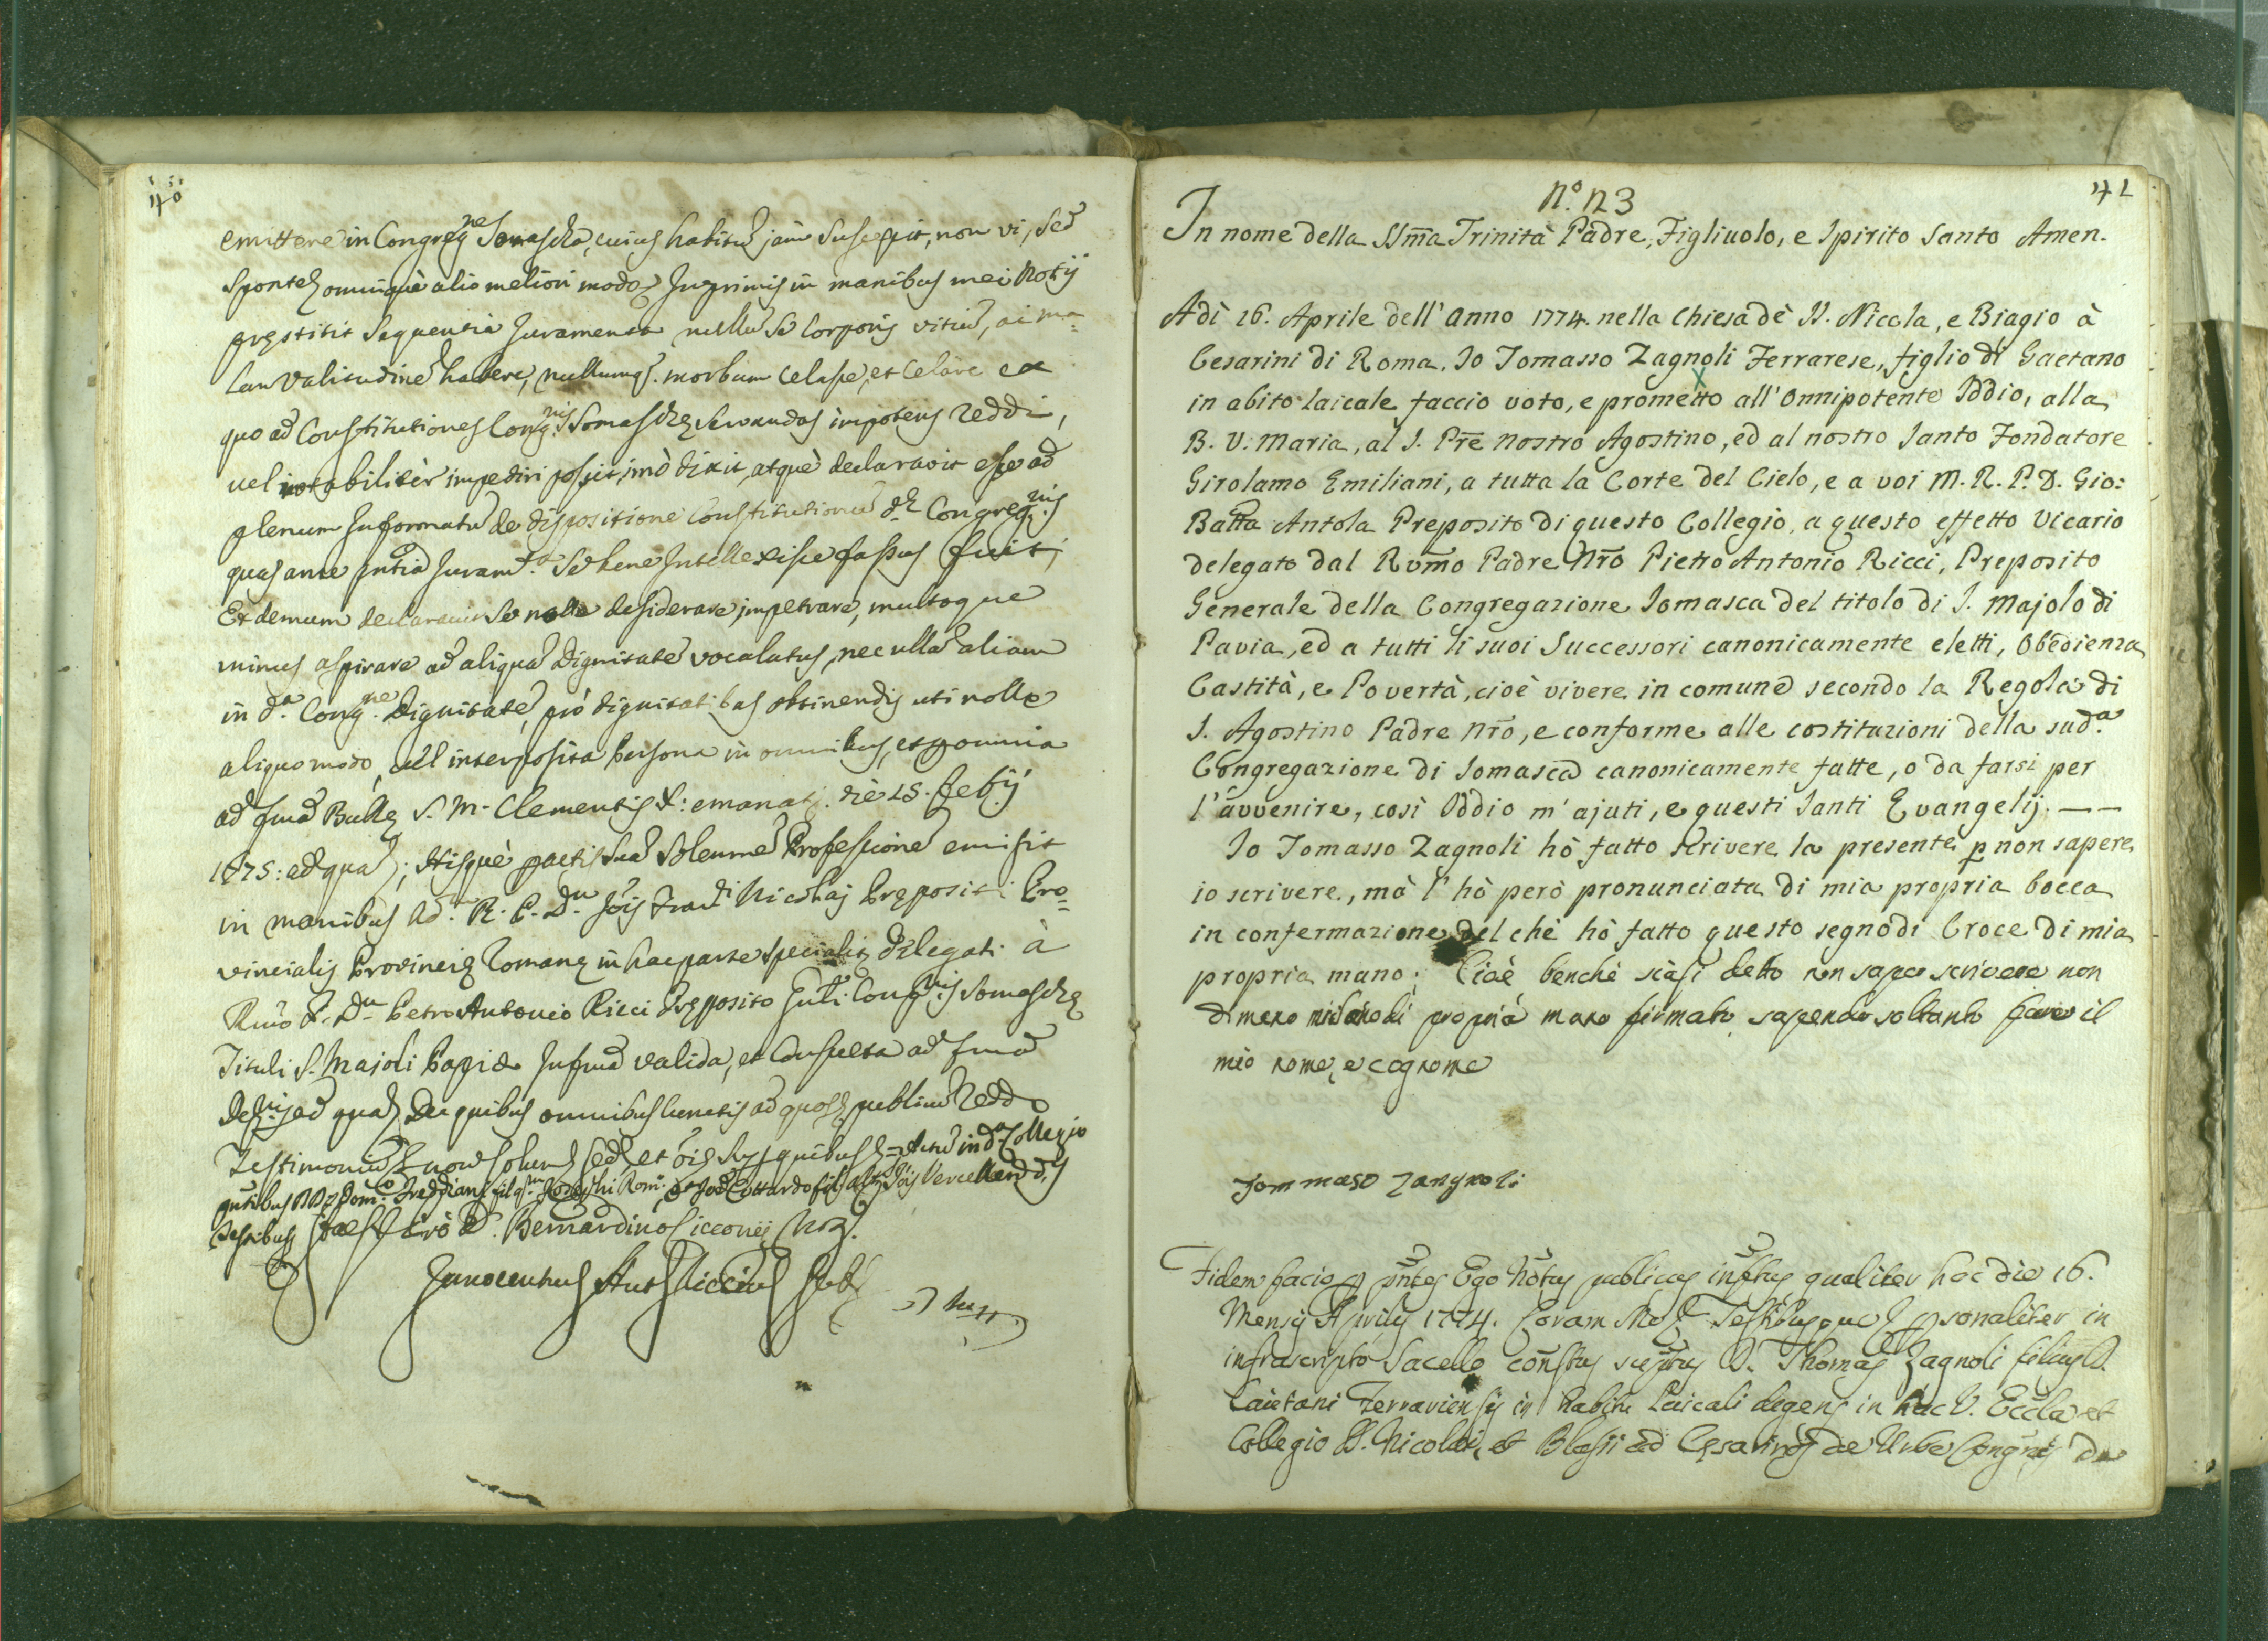 40
emittere in Congreg.ne Somascha, cuius habitu jam suscepit, non vi, sed
sponte omniquè alio meliori modo Inprimis in manibus mei Notij
prestitit sequentia Juramenta nullu se Corporis vitiu, ac ma=
lam Valitudine habere, nullumq. morbum celasse, et Celare ex
quo ad Constitutiones Cong.nis Somaschę servandas impotens reddi,
vel notabilitèr impediri possit, imò dixit, atquè declaravit esse ad
plenum Informatu de dispositione Constitutionu d. Congreg.nis
quas ante Juram.o se bene Intellexisse fassus fuit;
Et demum declaravit se nolle desiderare, impetrare, multoque
minus aspirare ad aliqua dignitate vocalatus, nec ulla aliam
in d.a Cong.ne dignitate, pro dignitatibus obtinendis uti nolle
aliquo modo, vel interposita persona in omnibus, et omnia
ad fma Bullę S. M. Clementis X: emanat. die 15. Feb.ij
1675: ad qua; Hisquè pactis sua Solemne Professione emisit
in manibus Ad. R. P. D.n Jois Nicolaj Prępositi Pro=
vincialis Provincię Romanę in hac parte specialit Delegati à
Rmo P. D.n Petro Antonio Ricci Pręposito Gnli Cong.nis Somaschę
Tituli S. Majoli Papię In fma valida, et Consueta ad fma
ad qua De quibus omnibus ad publicu Redd
Testimoniu non solum sed et quibus Actu in d. Collegio
D. Bernardino Cicconij
Innocentius Ant
41
N.º 123
In nome della SSm̃a Trinità Padre, Figliuolo, e Spirito Santo Amen.
Adì 16. Aprile dell' anno 1774. nella Chiesa dè SS. Nicola, e Biagio à
Cesarini di Roma. Io Tomasso Zagnoli Ferrarese, figlio di Gaetano
in abito laicale faccio voto, e prometto all' Onnipotente Iddio, alla
B. V. Maria, al S. Pr̃e Nostro Agostino, ed al nostro Santo Fondatore
Girolamo Emiliani, a tutta la Corte del Cielo, e a voi M. R. P. D. Gio:
Batta Antola Preposito di questo Collegio, a questo effetto Vicario
delegato dal Rṽmo Padre Nr̃o Pietro Antonio Ricci, Preposito
Generale della Congregazione Somasca del titolo di S. Majolo di
Pavia, ed a tutti li suoi Successori canonicamente eletti, Obedienza
Castità, e Povertà, cioè vivere in comune secondo la Regola di
S. Agostino Padre Nr̃o, e conforme alle costituzioni della sud.a
Congregazione di Somasca canonicamente fatte, o da farsi per
l'avvenire, così Iddio m'ajuti, e questi Santi Evangelij. — —
Io Tomasso Zagnoli hò fatto scrivere la presente p non sapere
io scrivere, mà l' hò però pronunciata di mia propria bocca
in confermazione del chè hò fatto questo segno di Croce di mia
propria mano; Cioè benchè siasi detto non saper scrivere non
di meno mi di propria mano firmato sapendo soltanto fare il
mio nome, e cognome
Tommaso Zangnoli
Fidem facio p pntes Ego Notus publicus infrus qualiter hac die 16.
Mensis Aprilis 1774. Coram Me Testibusque psonaliter in
infrascripto Sacello D. Thomas Zagnoli filius D.
Caietani Ferrariensis in habitu Laicali degens in hac V. Eccla et
Collegio SS. Nicolai, et Blasii ad Cęsarinos de Urbe Congnis de